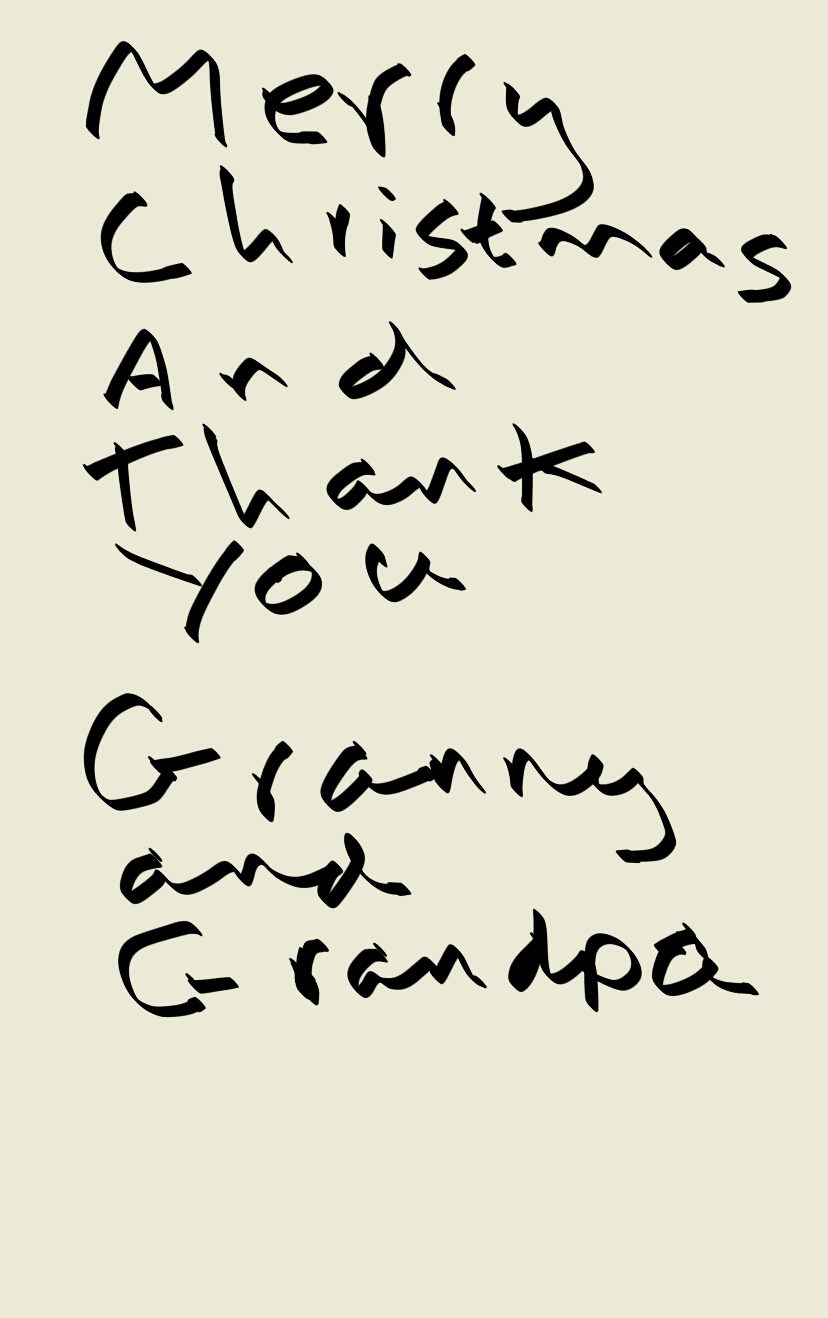 Merry
Christmas
And
Thank
You
Granny
and
Grandpa